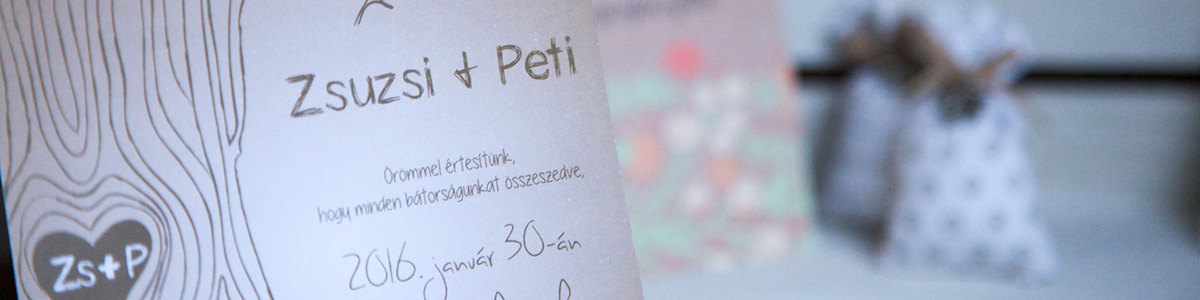 Zsuzsi + Peti
Örömmel értesítünk,
hogy minden bátorságunkat összeszedve,
2016. január 30-án
Zs+P